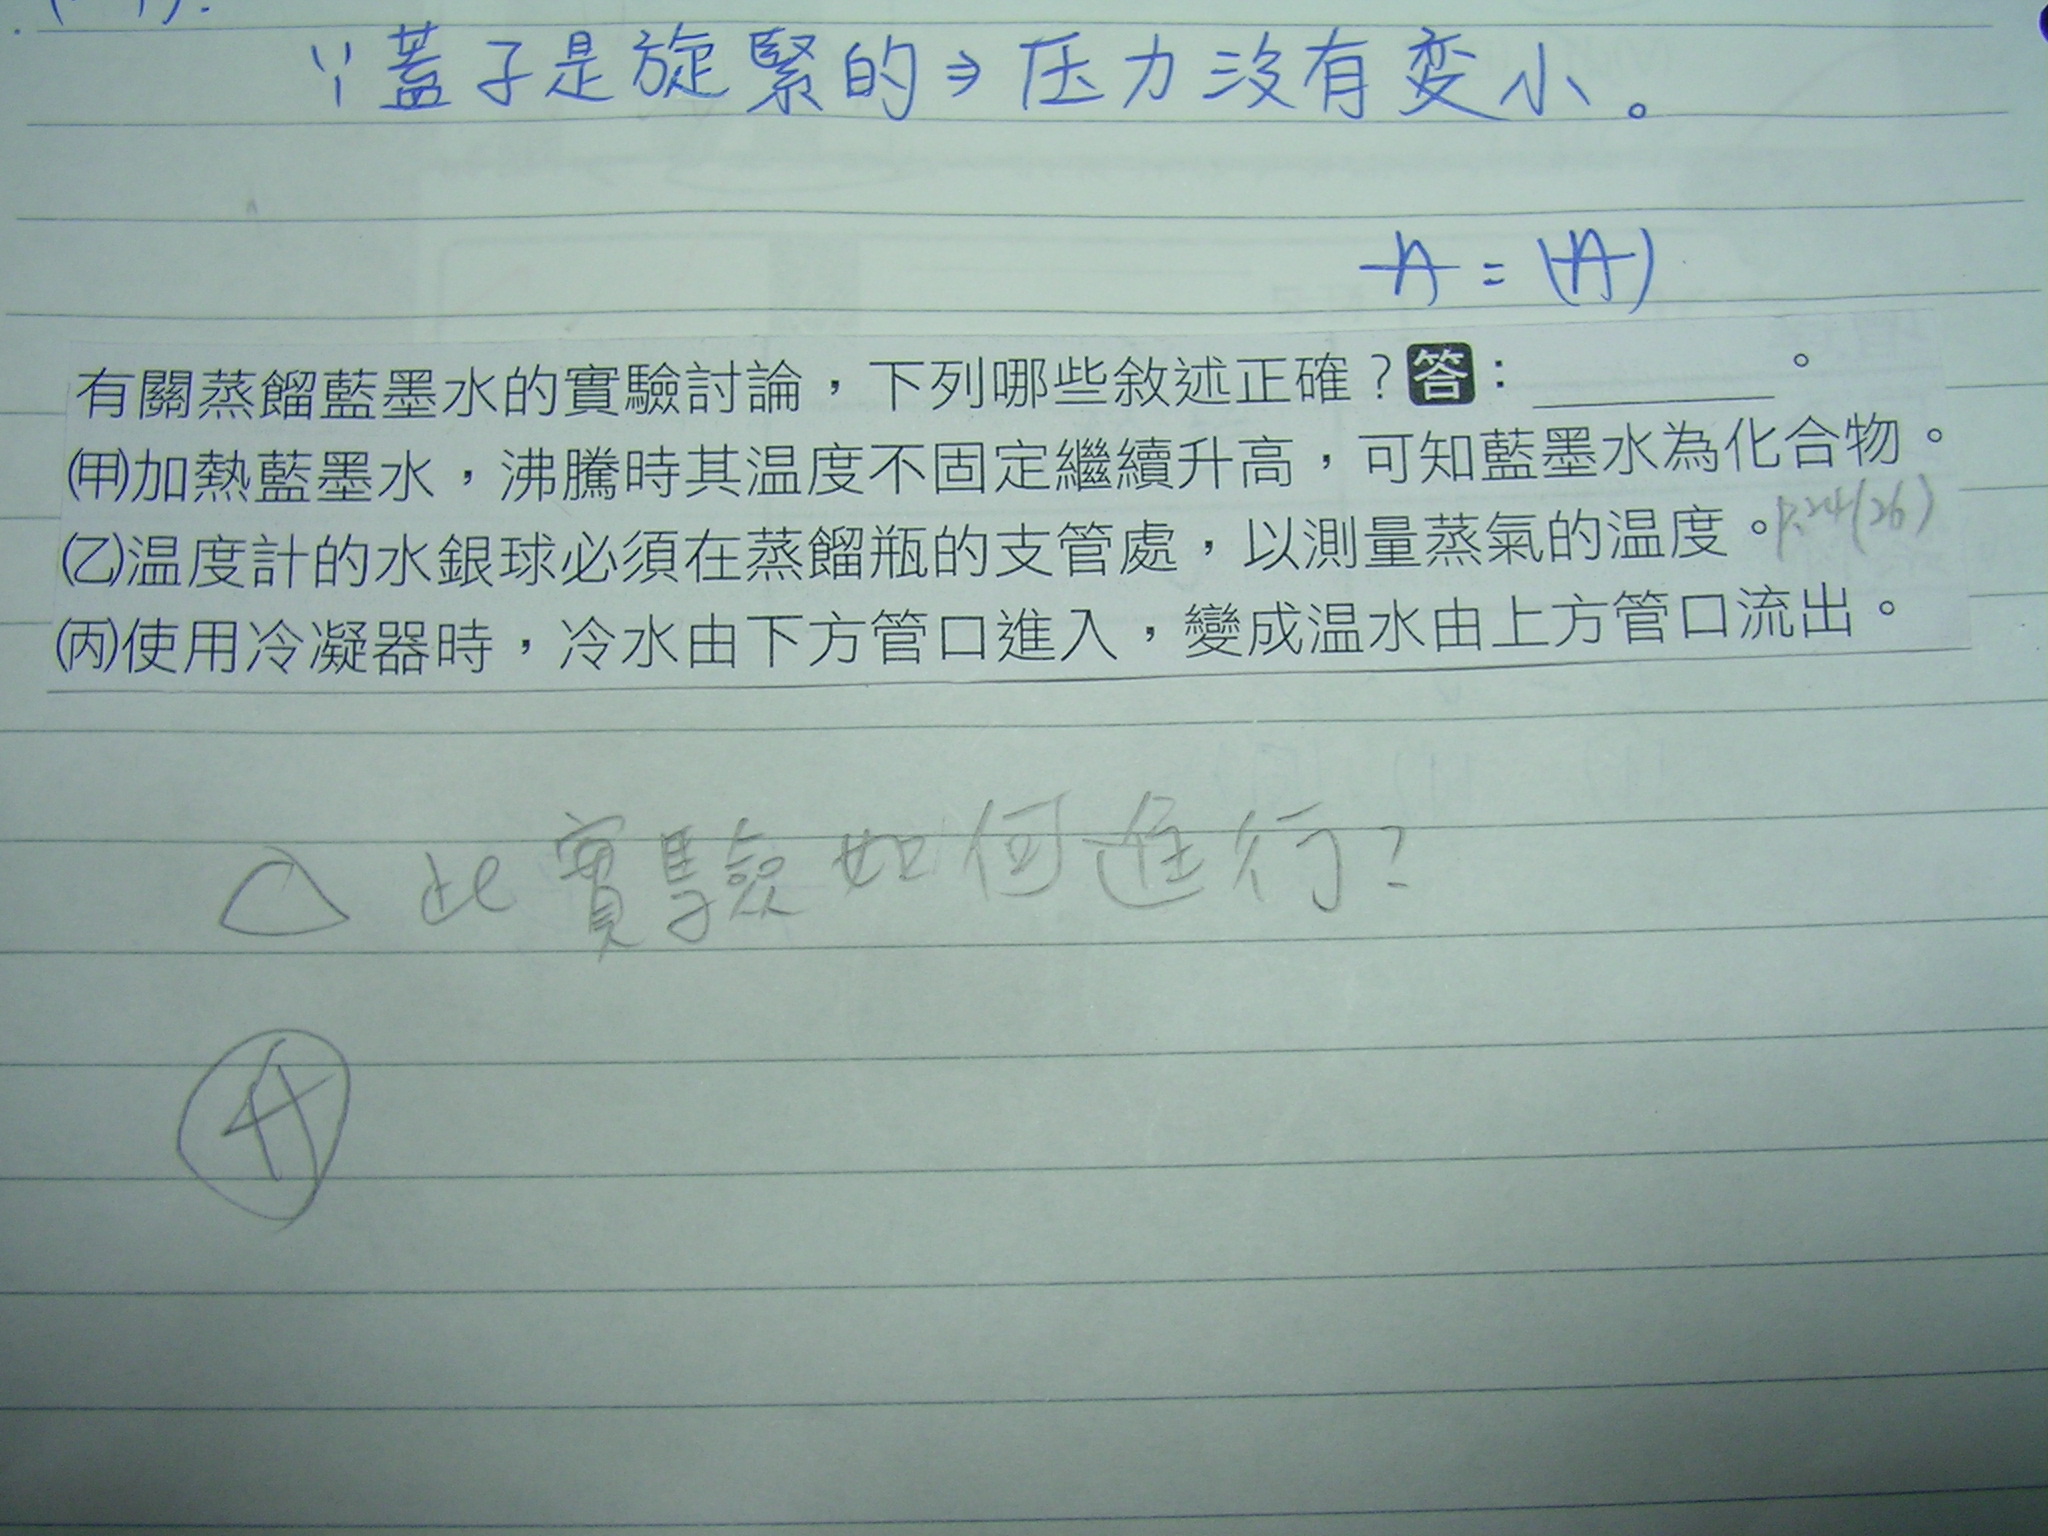 ∵蓋子是旋緊的⇒压力沒有变小。
A = (A)
有關蒸餾藍墨水的實驗討論，下列哪些敘述正確？答：＿＿＿。
㈙加熱藍墨水，沸騰時其温度不固定繼續升高，可知藍墨水為化合物。
㈚温度計的水銀球必須在蒸餾瓶的支管處，以測量蒸氣的温度。P.24(26)
㈛使用冷凝器時，冷水由下方管口進入，變成温水由上方管口流出。
△ 此實驗如何進行？
A